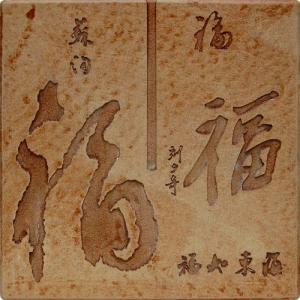 福
福
福如東海
蘇洵
福